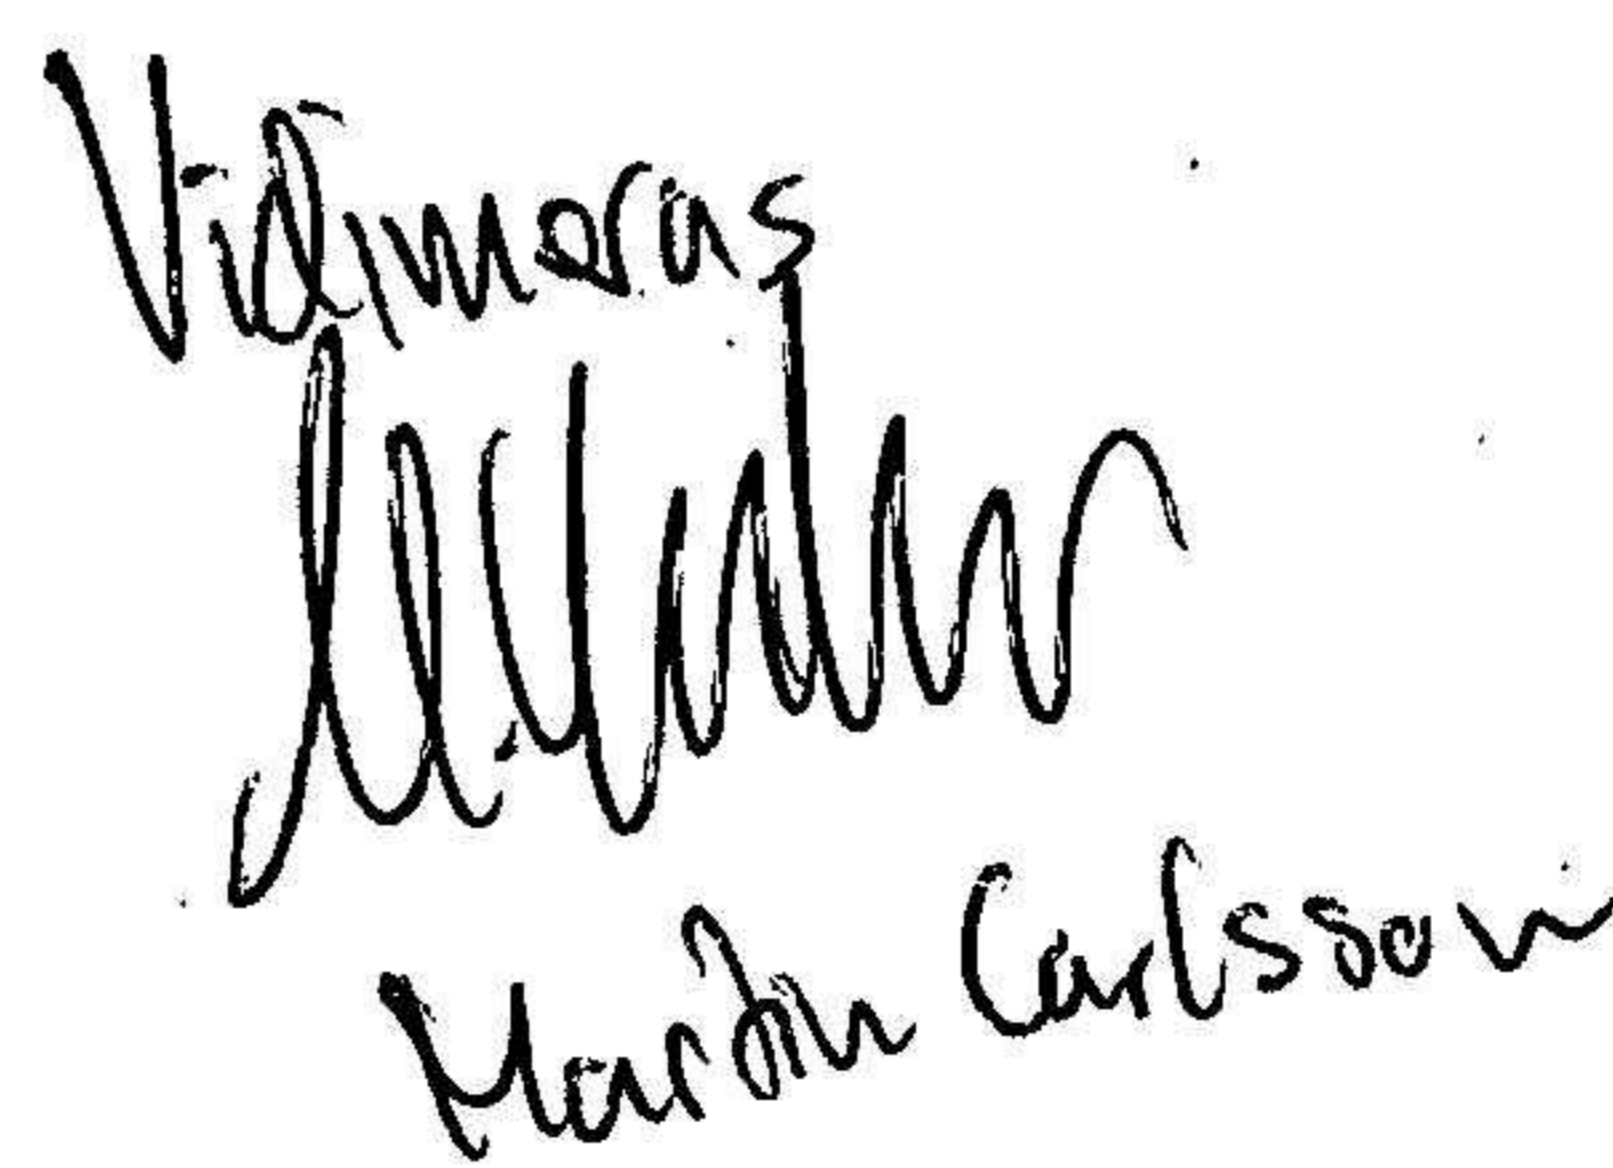 Vidimeras
Martin Carlsson